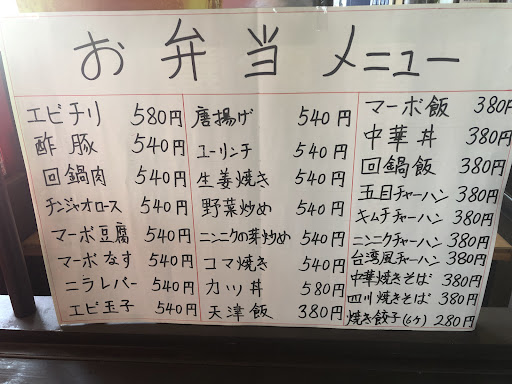 お弁当メニュー
エビチリ 580円
酢豚 540円
回鍋肉 540円
チンジャオロース 540円
マーボ豆腐 540円
マーボなす 540円
ニラレバー 540円
エビ玉子 540円
唐揚げ 540円
ユーリンチ 540円
生姜焼き 540円
野菜炒め 540円
ニンニクの芽炒め 540円
コマ焼き 540円
カツ丼 580円
天津飯 380円
マーボ飯 380円
中華丼 380円
回鍋飯 380円
五目チャーハン 380円
キムチチャーハン 380円
ニンニクチャーハン 380円
台湾風チャーハン 380円
中華焼きそば 380円
四川焼きそば 380円
焼き餃子(6ヶ) 280円